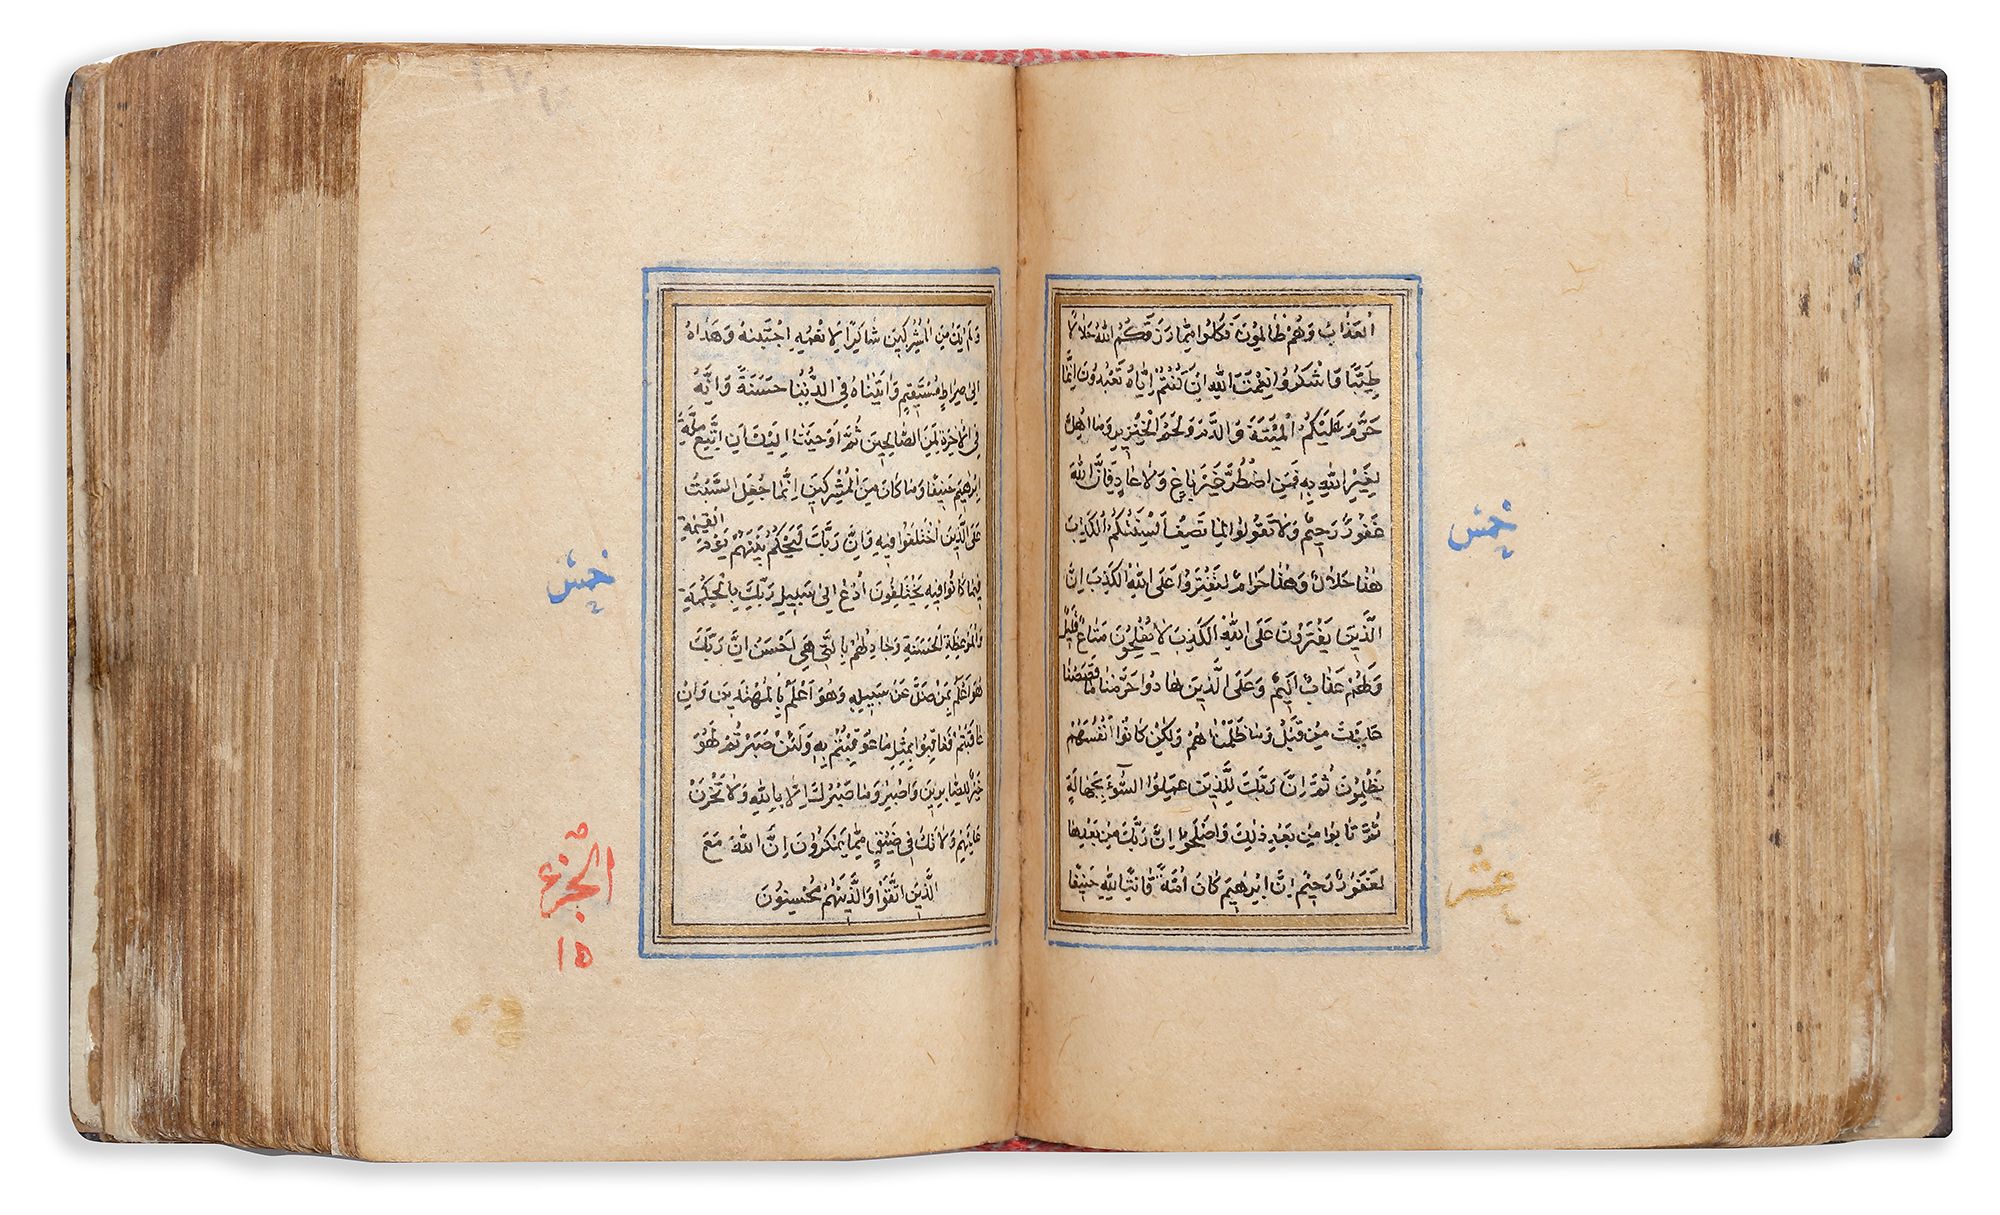 الْعَذَابُ وَهُمْ ظَالِمُونَ فَكُلُوا مِمَّا رَزَقَكُمُ اللهُ حَلَالًا
طَيِّبًا وَاشْكُرُوا نِعْمَتَ اللهِ اِنْ كُنْتُمْ اِيَّاهُ تَعْبُدُونَ اِنَّمَا
حَرَّمَ عَلَيْكُمُ الْمَيْتَةَ وَالدَّمَ وَلَحْمَ الْخِنْزِيرِ وَمَا اُهِلَّ
لِغَيْرِ اللهِ بِهِ فَمَنِ اضْطُرَّ غَيْرَ بَاغٍ وَلَا عَادٍ فَاِنَّ اللهَ
غَفُورٌ رَحِيمٌ وَلَا تَقُولُوا لِمَا تَصِفُ اَلْسِنَتُكُمُ الْكَذِبَ
هٰذَا حَلَالٌ وَهٰذَا حَرَامٌ لِتَفْتَرُوا عَلَى اللهِ الْكَذِبَ اِنَّ
الَّذِينَ يَفْتَرُونَ عَلَى اللهِ الْكَذِبَ لَا يُفْلِحُونَ مَتَاعٌ قَلِيلٌ
وَلَهُمْ عَذَابٌ اَلِيمٌ وَعَلَى الَّذِينَ هَادُوا حَرَّمْنَا مَا قَصَصْنَا
عَلَيْكَ مِنْ قَبْلُ وَمَا ظَلَمْنَاهُمْ وَلٰكِنْ كَانُوا اَنْفُسَهُمْ
يَظْلِمُونَ ثُمَّ اِنَّ رَبَّكَ لِلَّذِينَ عَمِلُوا السُّوٓءَ بِجَهَالَةٍ
ثُمَّ تَابُوا مِنْ بَعْدِ ذٰلِكَ وَاَصْلَحُوا اِنَّ رَبَّكَ مِنْ بَعْدِهَا
لَغَفُورٌ رَحِيمٌ اِنَّ اِبْرٰهِيمَ كَانَ اُمَّةً قَانِتًا لِلهِ حَنِيفًا
خمس
عشر
وَلَمْ يَكُ مِنَ الْمُشْرِكِينَ شَاكِرًا لِاَنْعُمِهِ اِجْتَبٰيهُ وَهَدَاهُ
اِلٰى صِرَاطٍ مُسْتَقِيمٍ وَاٰتَيْنَاهُ فِي الدُّنْيَا حَسَنَةً وَاِنَّهُ
فِي الْاٰخِرَةِ لَمِنَ الصَّالِحِينَ ثُمَّ اَوْحَيْنَا اِلَيْكَ اَنِ اتَّبِعْ مِلَّةَ
اِبْرٰهِيمَ حَنِيفًا وَمَا كَانَ مِنَ الْمُشْرِكِينَ اِنَّمَا جُعِلَ السَّبْتُ
عَلَى الَّذِينَ اخْتَلَفُوا فِيهِ وَاِنَّ رَبَّكَ لَيَحْكُمُ بَيْنَهُمْ يَوْمَ الْقِيٰمَةِ
فِيمَا كَانُوا فِيهِ يَخْتَلِفُونَ اُدْعُ اِلٰى سَبِيلِ رَبِّكَ بِالْحِكْمَةِ
وَالْمَوْعِظَةِ الْحَسَنَةِ وَجَادِلْهُمْ بِالَّتِي هِيَ اَحْسَنُ اِنَّ رَبَّكَ
هُوَ اَعْلَمُ بِمَنْ ضَلَّ عَنْ سَبِيلِهِ وَهُوَ اَعْلَمُ بِالْمُهْتَدِينَ وَاِنْ
عَاقَبْتُمْ فَعَاقِبُوا بِمِثْلِ مَا عُوقِبْتُمْ بِهِ وَلَئِنْ صَبَرْتُمْ لَهُوَ
خَيْرٌ لِلصَّابِرِينَ وَاصْبِرْ وَمَا صَبْرُكَ اِلَّا بِاللهِ وَلَا تَحْزَنْ
عَلَيْهِمْ وَلَا تَكُ فِي ضَيْقٍ مِمَّا يَمْكُرُونَ اِنَّ اللهَ مَعَ
الَّذِينَ اتَّقَوْا وَالَّذِينَ هُمْ مُحْسِنُونَ
خمس
الجزء
١٥